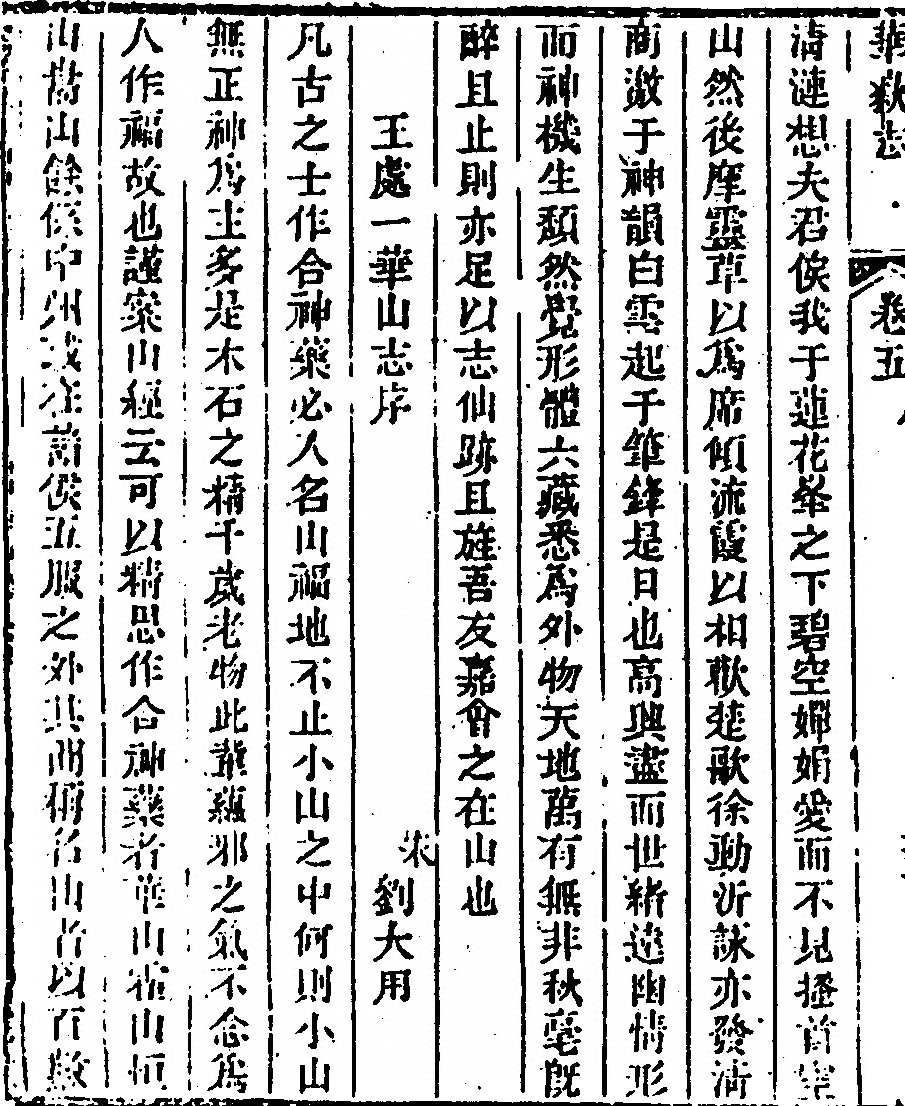 華嶽志 卷五
淸漣想夫君俟我于蓮花峯之下碧空嬋娟愛而不見搔首
山然後摩靈草以爲席傾流霞以相歡楚歌徐動沂詠亦發淸
商激于神韻白雲起于筆鋒是日也高興盡而世緒遠幽情形
而神機生頹然覺形體六藏悉爲外物天地萬有無非秋毫旣
醉且止則亦足以志仙跡且旌吾友嘉會之在山也
王處一華山志序
宋劉大用
凡古之士作合神藥必入名山福地不止小山之中何則小山
無正神爲主多是木石之精千歲老物此輩蘊邪之氣不念爲
人作福故也謹案山經云可以精思作合神藥者華山霍山恒
山嵩山餘係中州或在諸侯五服之外其間稱名山者以百數